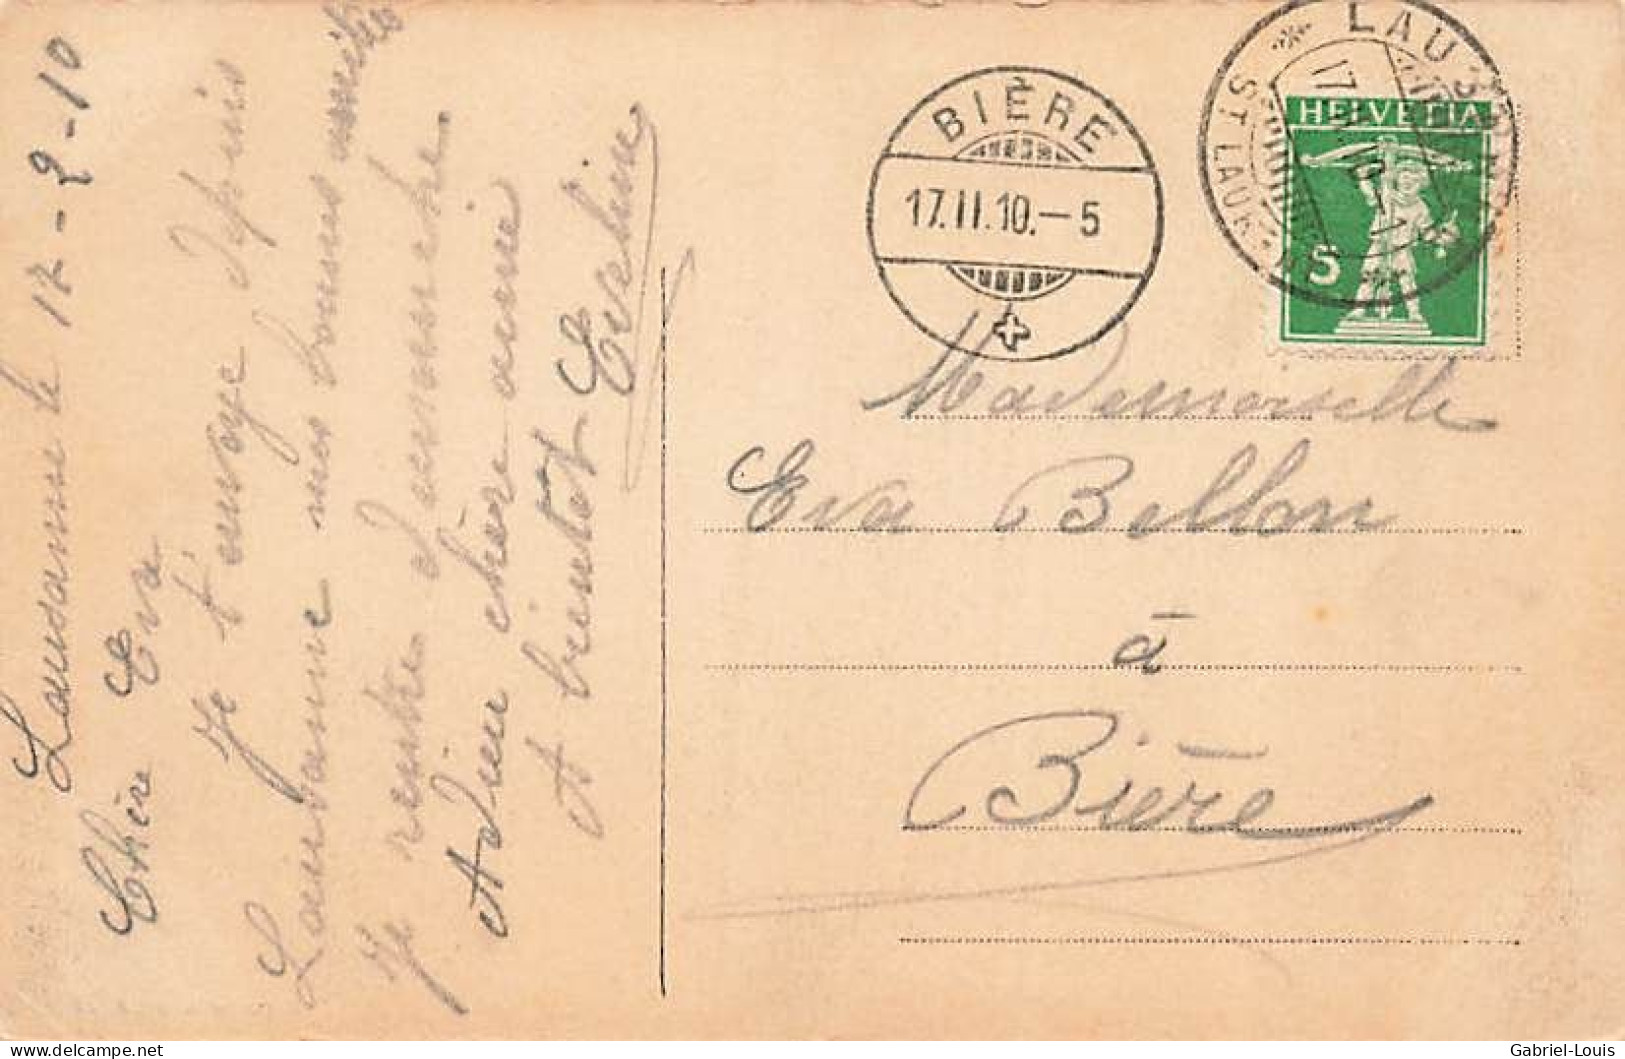 Lausanne le 17-2-10
Chère Eva
Je t'envoye depuis
Lausanne mes bonnes amitiés
Je rentre
Adieu chère amie
A bientot Eveline
BIÈRE
17.II.10.–5
LAUSANNE
ST LAU
17
HELVETIA
5
Mademoiselle
Eva Bellon
à
Bière
Gabriel-Louis